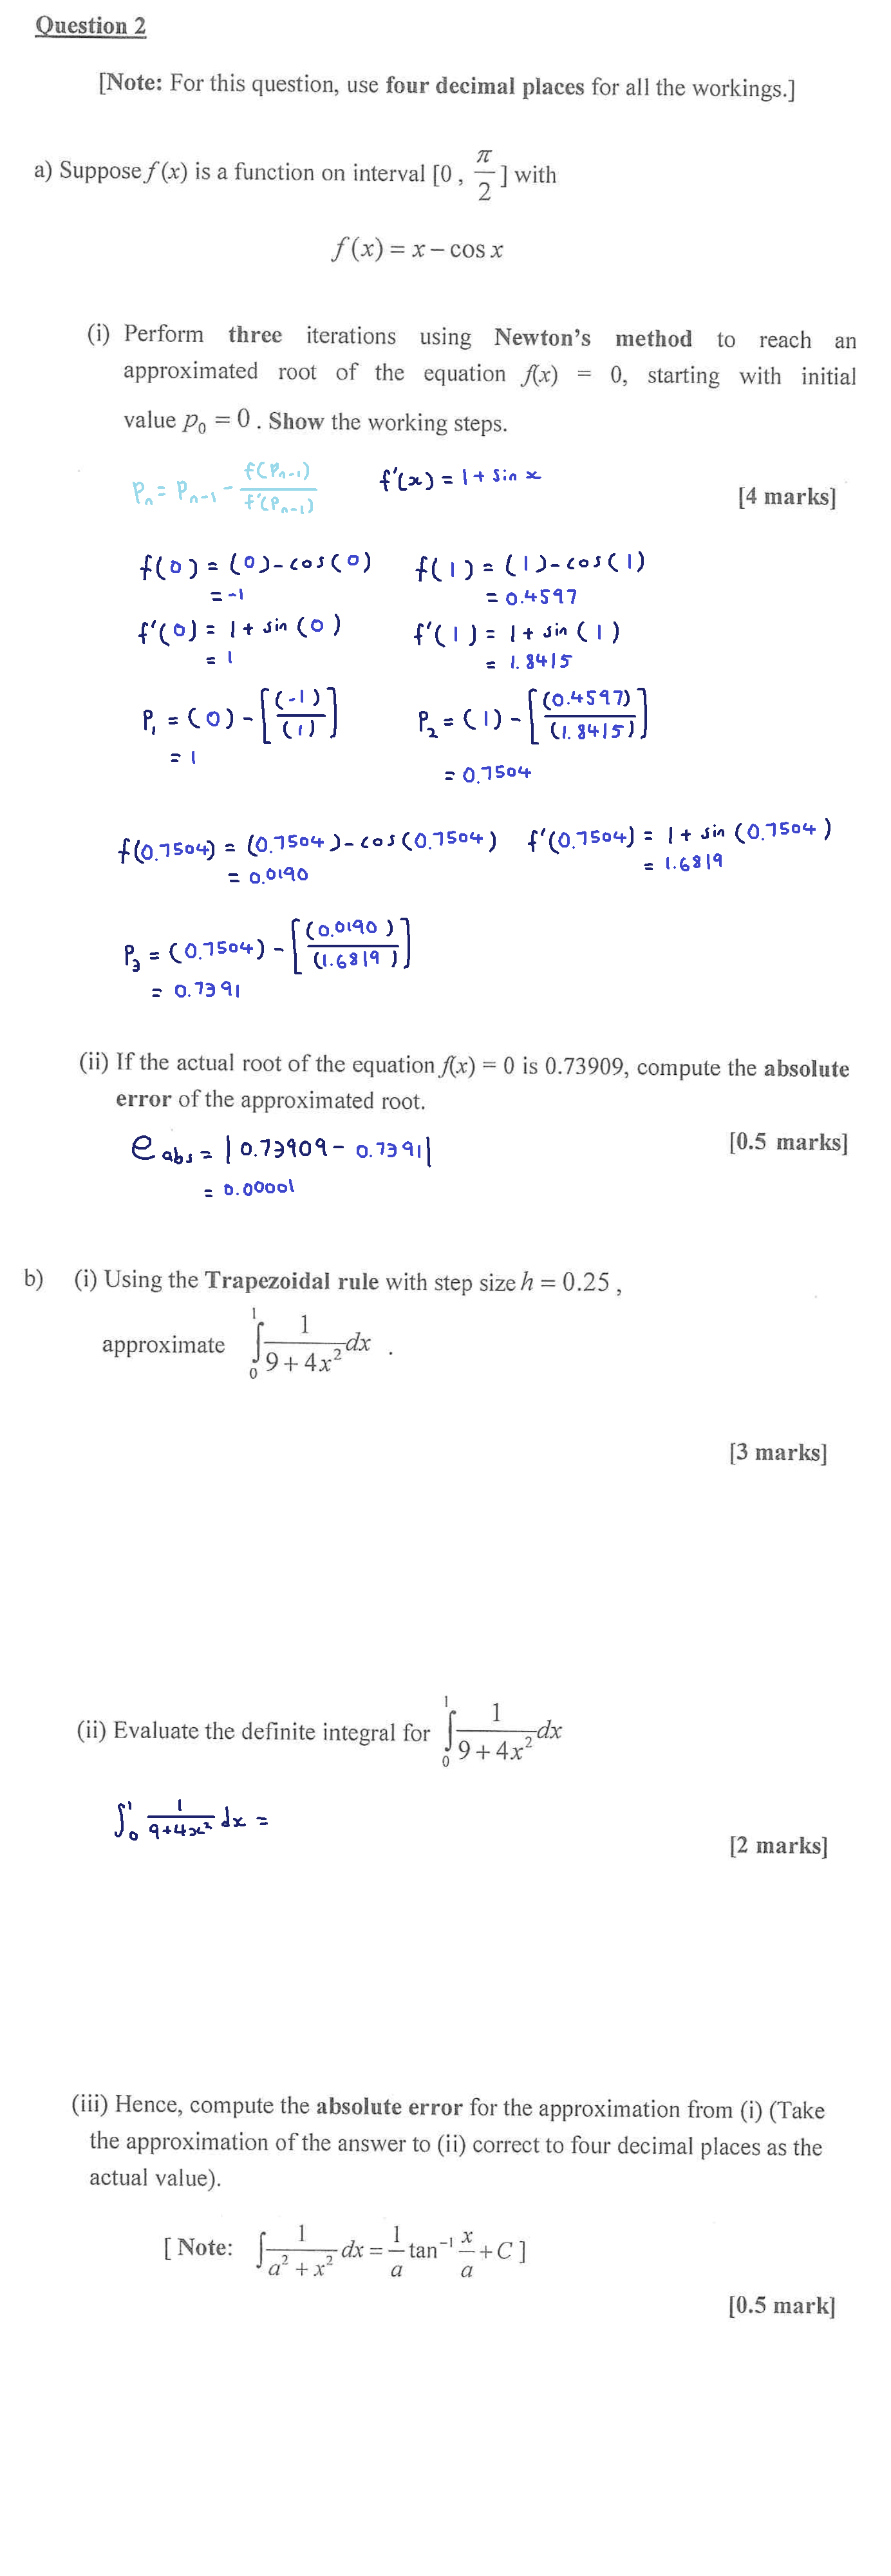 Question 2
[Note: For this question, use four decimal places for all the workings.]
a) Suppose f (x) is a function on interval [0 , π/2 ] with
f (x) = x – cos x
(i) Perform three iterations using Newton's method to reach an
approximated root of the equation f(x) = 0, starting with initial
value p₀ = 0 . Show the working steps.
Pₙ = Pₙ₋₁ - f(Pₙ₋₁)/f'(Pₙ₋₁) f'(x) = 1 + sin x
[4 marks]
f(0) = (0) - cos(0) f(1) = (1) - cos(1)
= -1 = 0.4597
f'(0) = 1 + sin (0) f'(1) = 1 + sin (1)
= 1 = 1.8415
P₁ = (0) - [(-1)/(1)] P₂ = (1) - [(0.4597)/(1.8415)]
= 1 = 0.7504
f(0.7504) = (0.7504) - cos(0.7504) f'(0.7504) = 1 + sin (0.7504)
= 0.0190 = 1.6819
P₃ = (0.7504) - [(0.0190)/(1.6819)]
= 0.7391
(ii) If the actual root of the equation f(x) = 0 is 0.73909, compute the absolute
error of the approximated root.
[0.5 marks]
e abs = |0.73909 - 0.7391|
= 0.00001
b) (i) Using the Trapezoidal rule with step size h = 0.25 ,
approximate ∫₀¹ 1/(9 + 4x²) dx .
[3 marks]
(ii) Evaluate the definite integral for ∫₀¹ 1/(9 + 4x²) dx
∫₀¹ 1/(9+4x²) dx =
[2 marks]
(iii) Hence, compute the absolute error for the approximation from (i) (Take
the approximation of the answer to (ii) correct to four decimal places as the
actual value).
[ Note: ∫ 1/(a² + x²) dx = 1/a tan⁻¹ x/a + C ]
[0.5 mark]